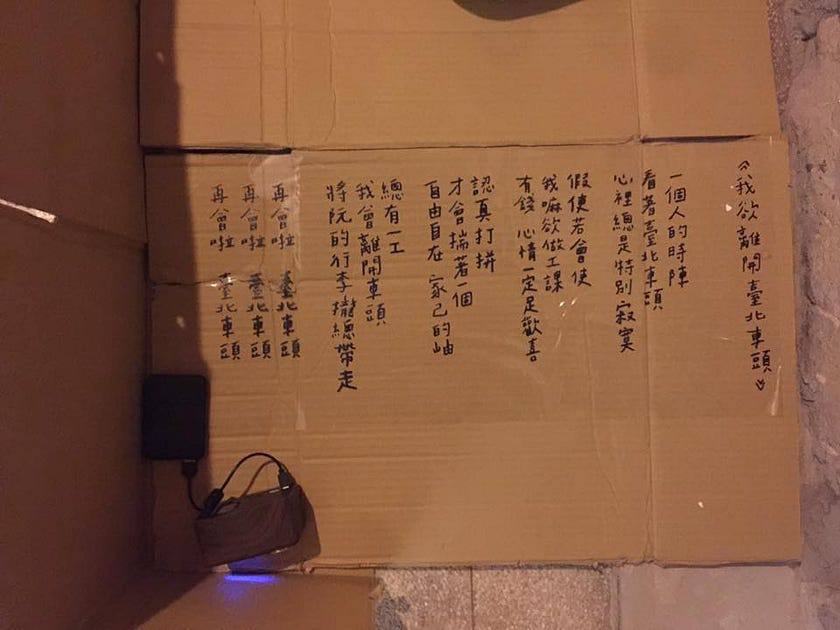 《我欲離開臺北車頭》
一個人的時陣
看著臺北車頭
心裡總是特別寂寞
假使若會使
我嘛欲做工課
有錢 心情一定足歡喜
認真打拼
才會揣著一個
自由自在 家己的岫
總有一工
我會離開車頭
將阮的行李攏總帶走
再會啦 臺北車頭
再會啦 臺北車頭
再會啦 臺北車頭